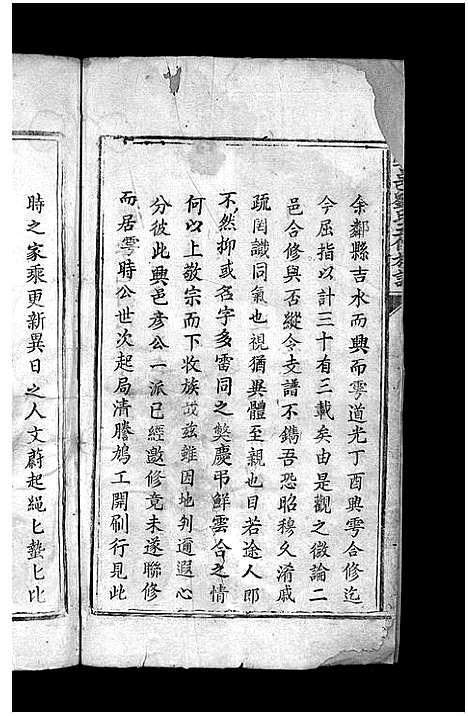 余鄰縣吉水而興而雩道光丁酉興雩合修迄
今屈指以計三十有三載矣由是觀之微論二
邑合修與否縱令支譜不鐫吾恐昭穆久淆戚
疏罔識同氣也視猶異體至親也目若途人即
不然抑或名字多雷同之獘慶弔鮮雲合之情
何以上敬宗而下收族哉茲雖因地判邇遐心
分彼此興邑彥公一派已經邀修竟未遂聯修
而居雩時公世次起局清謄鳩工開刷行見此
時之家乘更新異日之人文蔚起繩匕蟄匕比